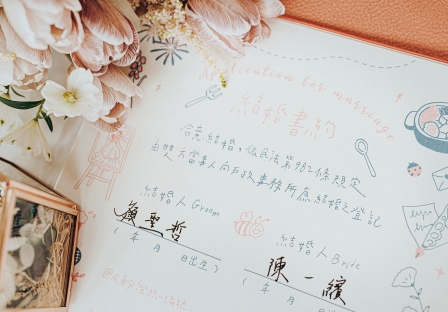 Application for marriage
結婚書約
合意結婚，依民法第982條規定
由雙方當事人向戶政事務所為結婚之登記
結婚人 Groom
賴聖哲
( 年 月 日出生 )
結婚人 Bride
陳一
( 年 月